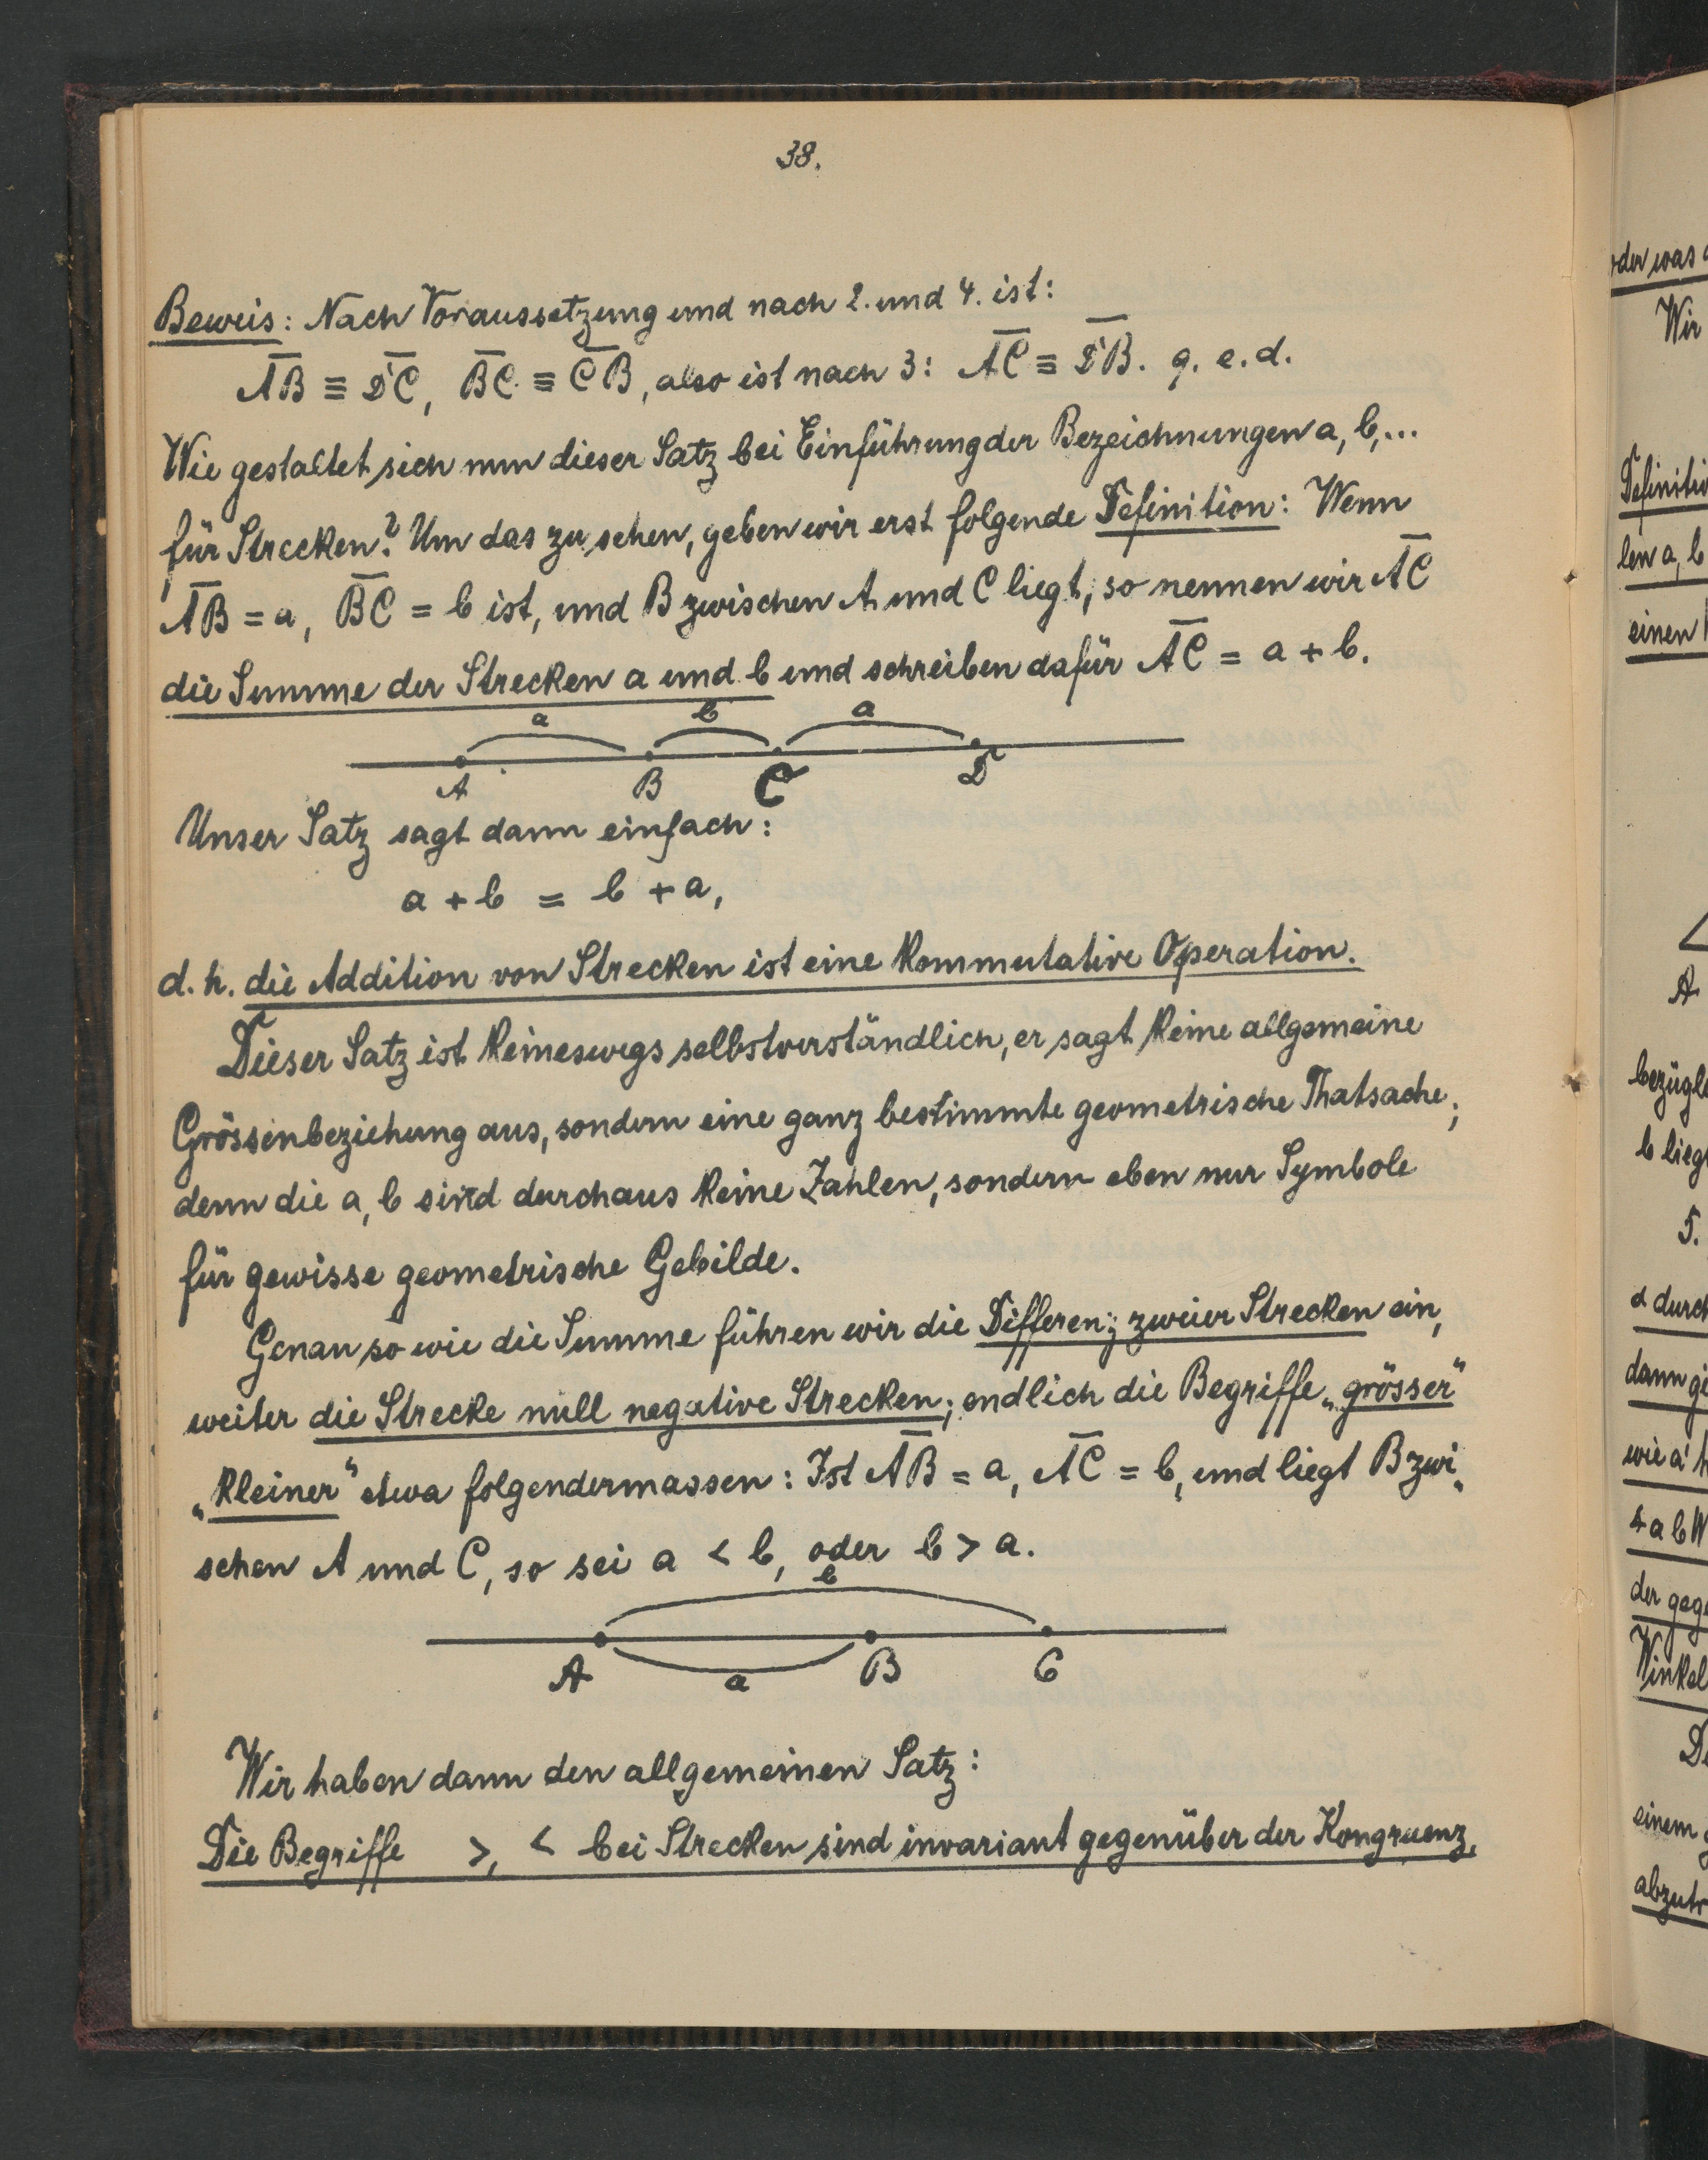 38.
Beweis: Nach Voraussetzung und nach 2. und 4. ist:
A̅B̅ ≡ D̅C̅, B̅C̅ ≡ C̅B̅, also ist nach 3: A̅C̅ ≡ D̅B̅. q. e. d.
Wie gestaltet sich nun dieser Satz bei Einführung der Bezeichnungen a, b, ...
für Strecken? Um das zu sehen, geben wir erst folgende Definition: Wenn
A̅B̅ = a, B̅C̅ = b ist, und B zwischen A und C liegt, so nennen wir A̅C̅
die Summe der Strecken a und b und schreiben dafür A̅C̅ = a + b.
a b a
A B C D
Unser Satz sagt dann einfach:
a + b = b + a,
d. h. die Addition von Strecken ist eine kommutative Operation.
Dieser Satz ist keineswegs selbstverständlich, er sagt keine allgemeine
Grössenbeziehung aus, sondern eine ganz bestimmte geometrische Thatsache;
denn die a, b sind durchaus keine Zahlen, sondern eben nur Symbole
für gewisse geometrische Gebilde.
Genau so wie die Summe führen wir die Differenz zweier Strecken ein,
weiter die Strecke null negative Strecken; endlich die Begriffe „grösser“
„kleiner“ etwa folgendermassen: Ist A̅B̅ = a, A̅C̅ = b, und liegt B zwi„
schen A und C, so sei a < b, oder b > a.
b
A a B C
Wir haben dann den allgemeinen Satz:
Die Begriffe >, < bei Strecken sind invariant gegenüber der Kongruenz.
oder was
Wir
Definitio
len a, b
einen
A
bezügl
b lieg
5.
durch
dann
wie a'
∢ a b W
der geg
Winkel
einem
abzutr